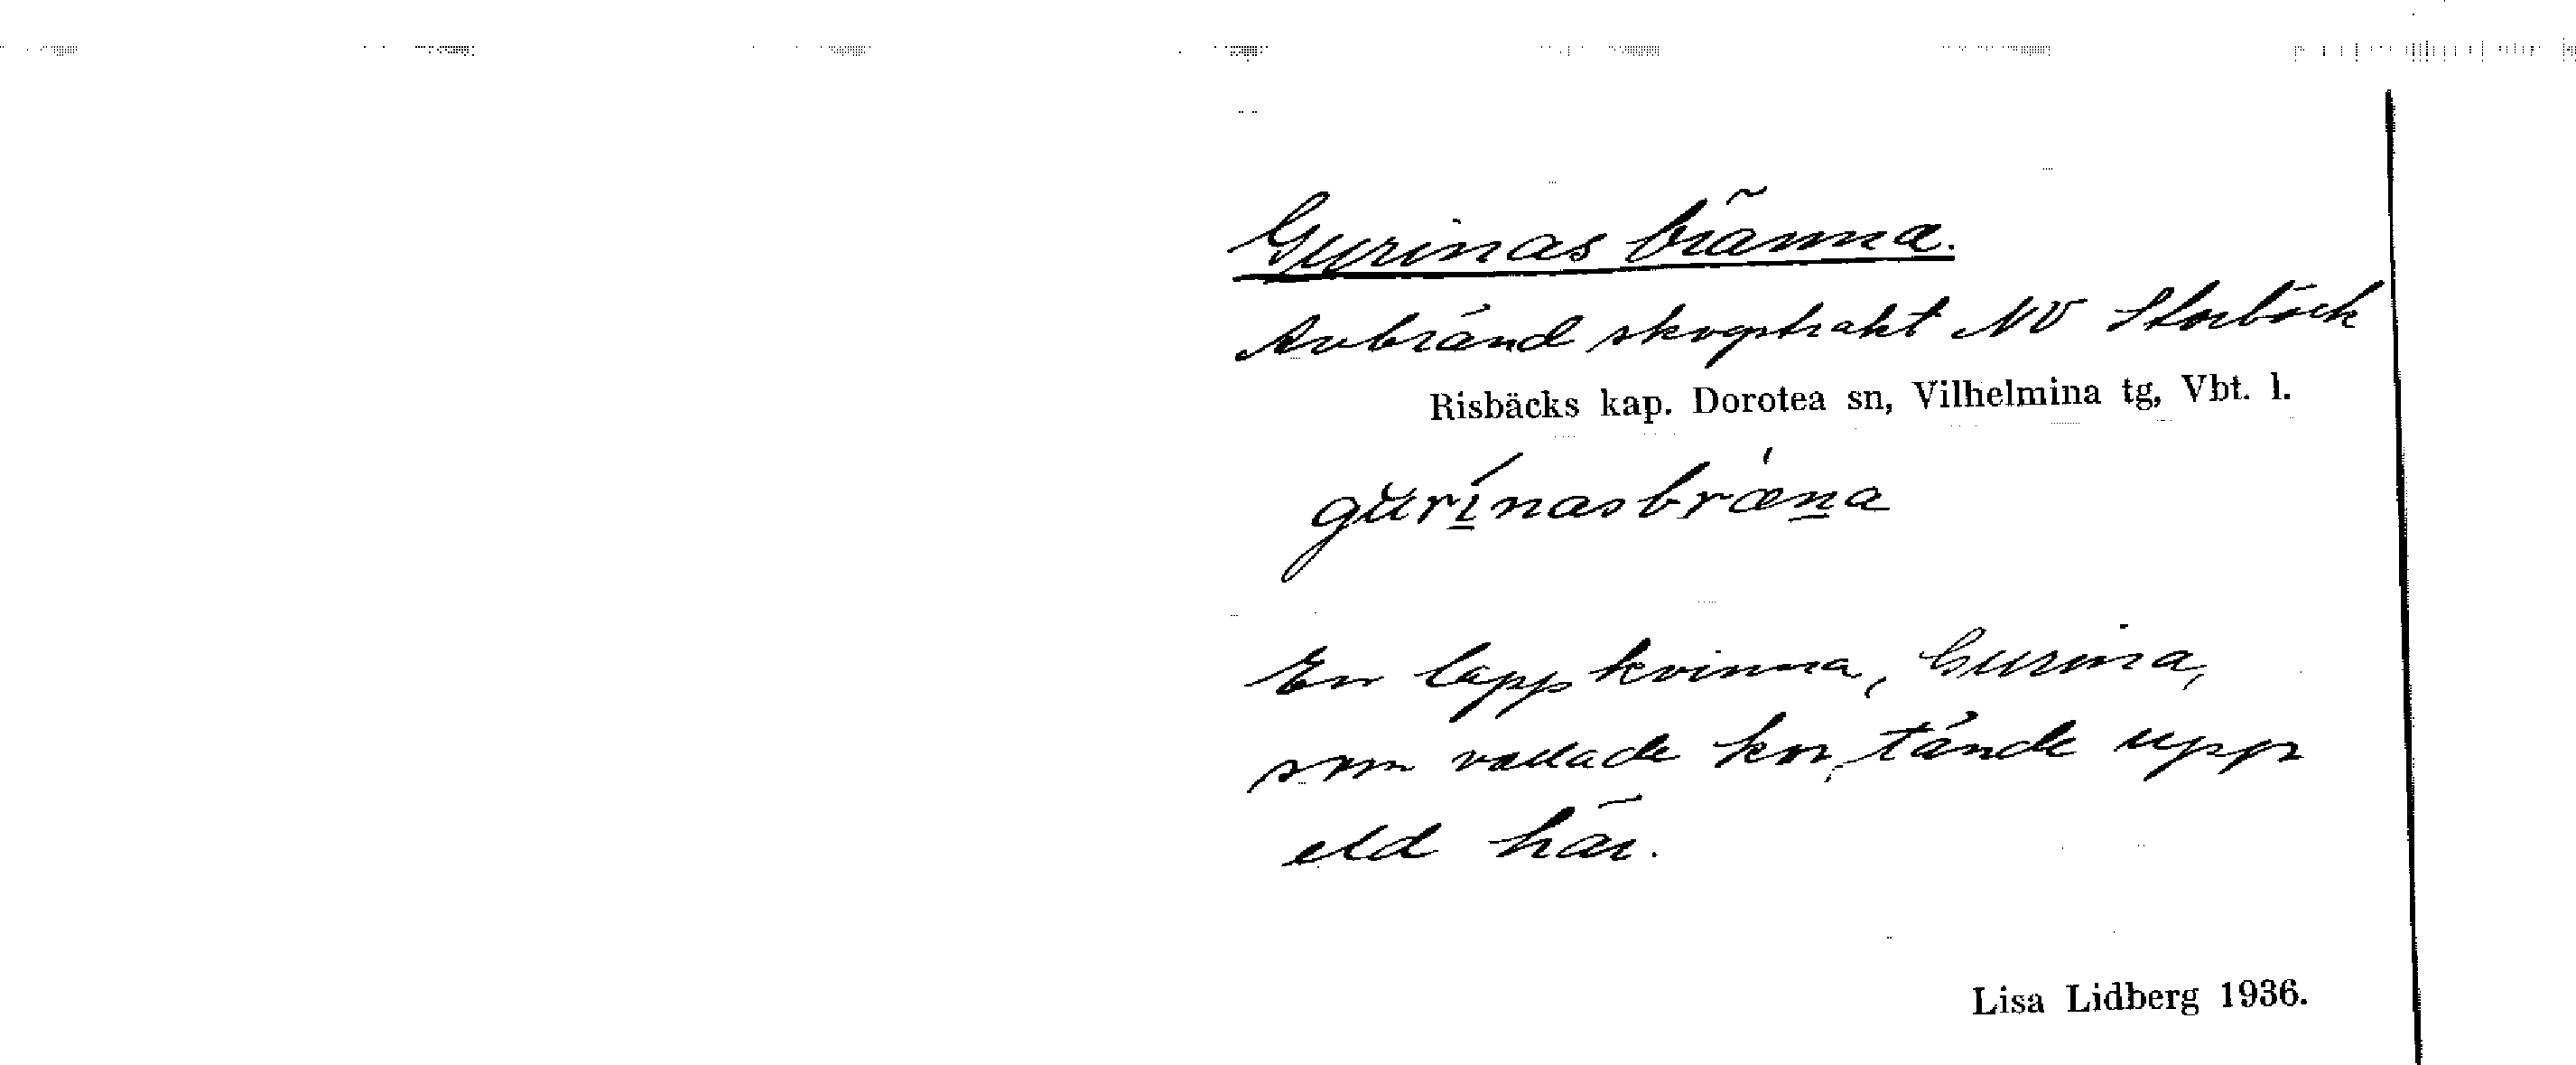 Gurinasbränna.
Avbränd skogstrakt NV Storbäck
Risbäcks kap. Dorotea sn, Vilhelmina tg, Vbt. l.
gurínasbræṉa
En lappkvinna, Gurina,
som vallade kor, tände upp
eld här.
Lisa Lidberg 1936.